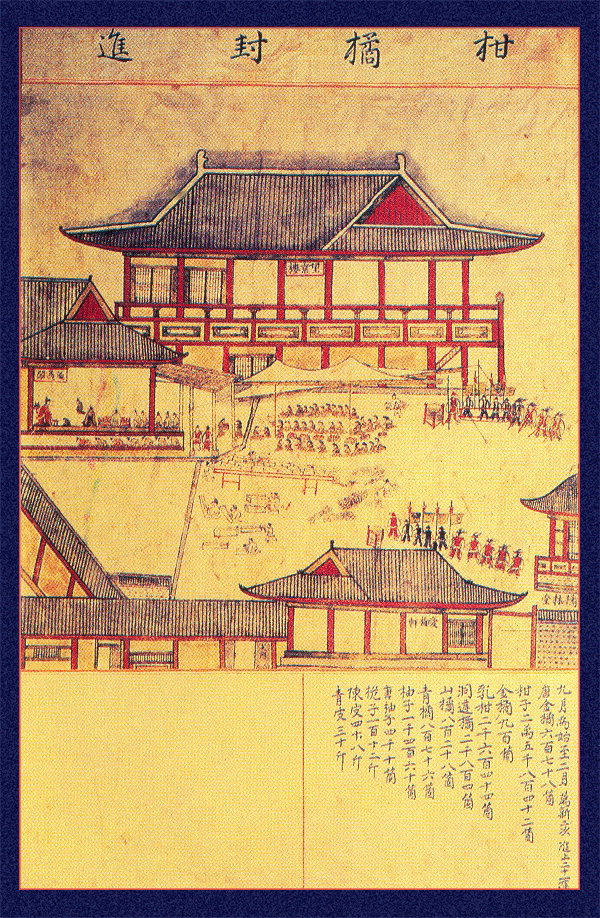 柑橘封進
望京樓
愛梅軒
九月爲始至二月 薦新二次 進上二十一運
唐金橘六百七十八箇
柑子二萬五千八百四十二箇
金橘九百箇
乳柑二千六百四十四箇
洞庭橘二千八百四箇
山橘八百二十八箇
青橘八百七十六箇
柚子一千四百六十箇
唐柚子四千十箇
梔子一百十二斤
陳皮四十八斤
青皮三十斤